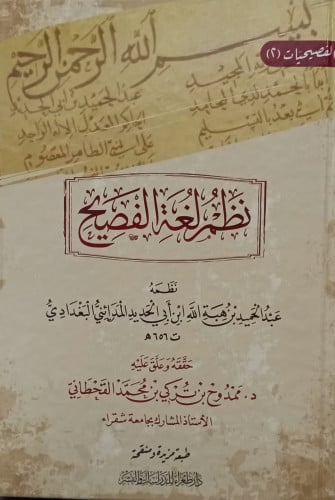 الفصيحيات (٢)
بسم الله الرحمن الرحيم
نَظْمُ لُغَةِ الفَصِيْحِ
نَظَمَهُ
عَبْدُ الحَمِيدِ بْنُ هِبَةِ اللهِ ابْنِ أَبِي الحَدِيدِ المَدَائِنِيُّ البَغْدَادِيُّ
ت ٦٥٦ هـ
حَقَّقَهُ وَعَلَّقَ عَلَيْهِ
د. مَمْدُوحُ بْنُ تُرْكِي بْنِ مُحَمَّد القَحْطَانِيُّ
الأستاذ المشارك بجامعة شقراء
طبعة مزيدة ومنقحة